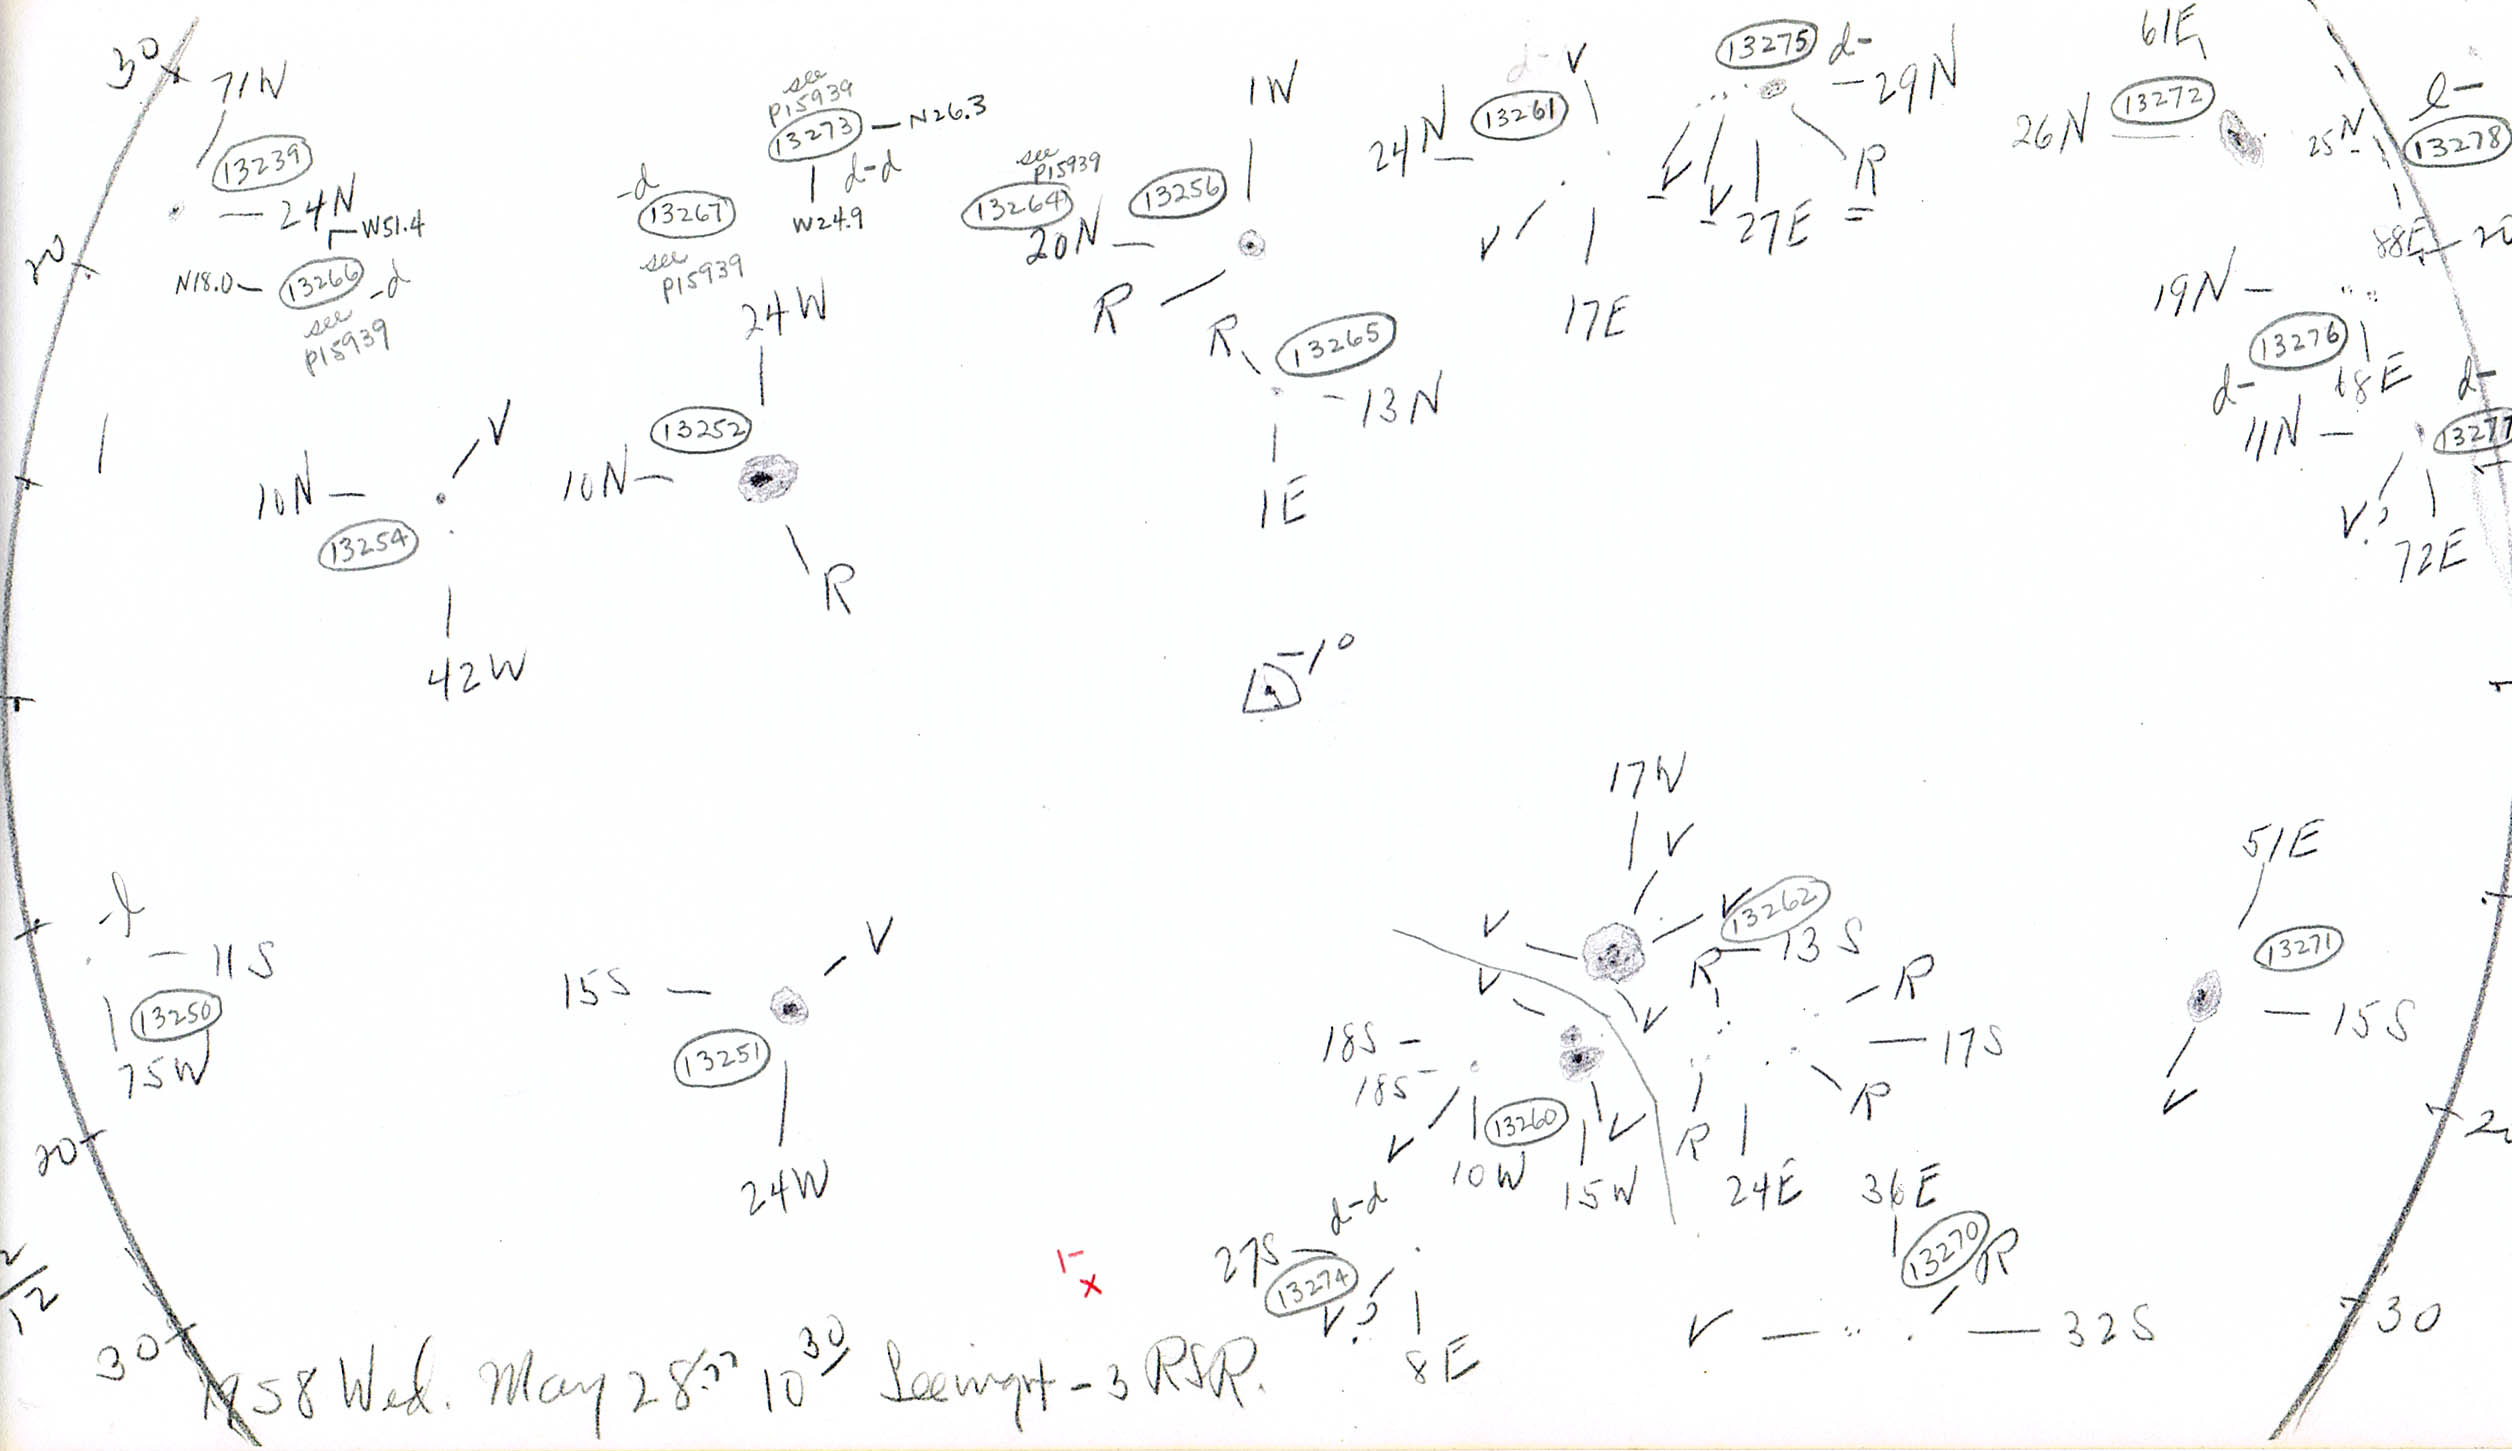 30
71W
13239
24N
W51.4
20
N18.0
13266
-d
see
P15939
see
P15939
13273
N26.3
d-d
W24.9
-d
13267
see
P15939
1W
see
P15939
13264
13256
20N
R
V
24N
13261
V
17E
13275
d-
29N
V
V
27E
R
61E
26N
13272
25N
l-
13278
88E
19N
13276
d-
18E
d-
11N
13277
V?
72E
24W
13252
10N
R
10N
V
13254
42W
R
13265
13N
1E
-1°
17W
V
V
13262
V
R
13S
V
V
R
18S
17S
18S
V
13260
V
R
R
10W
15W
24E
36E
51E
13271
15S
V
-l
11S
13250
75W
15S
V
13251
24W
20
30
d-d
27S
13274
V?
8E
1-
x
13270
R
V
32S
30
1958 Wed. May 28.77 10 30 Seeing - 3 RSR.